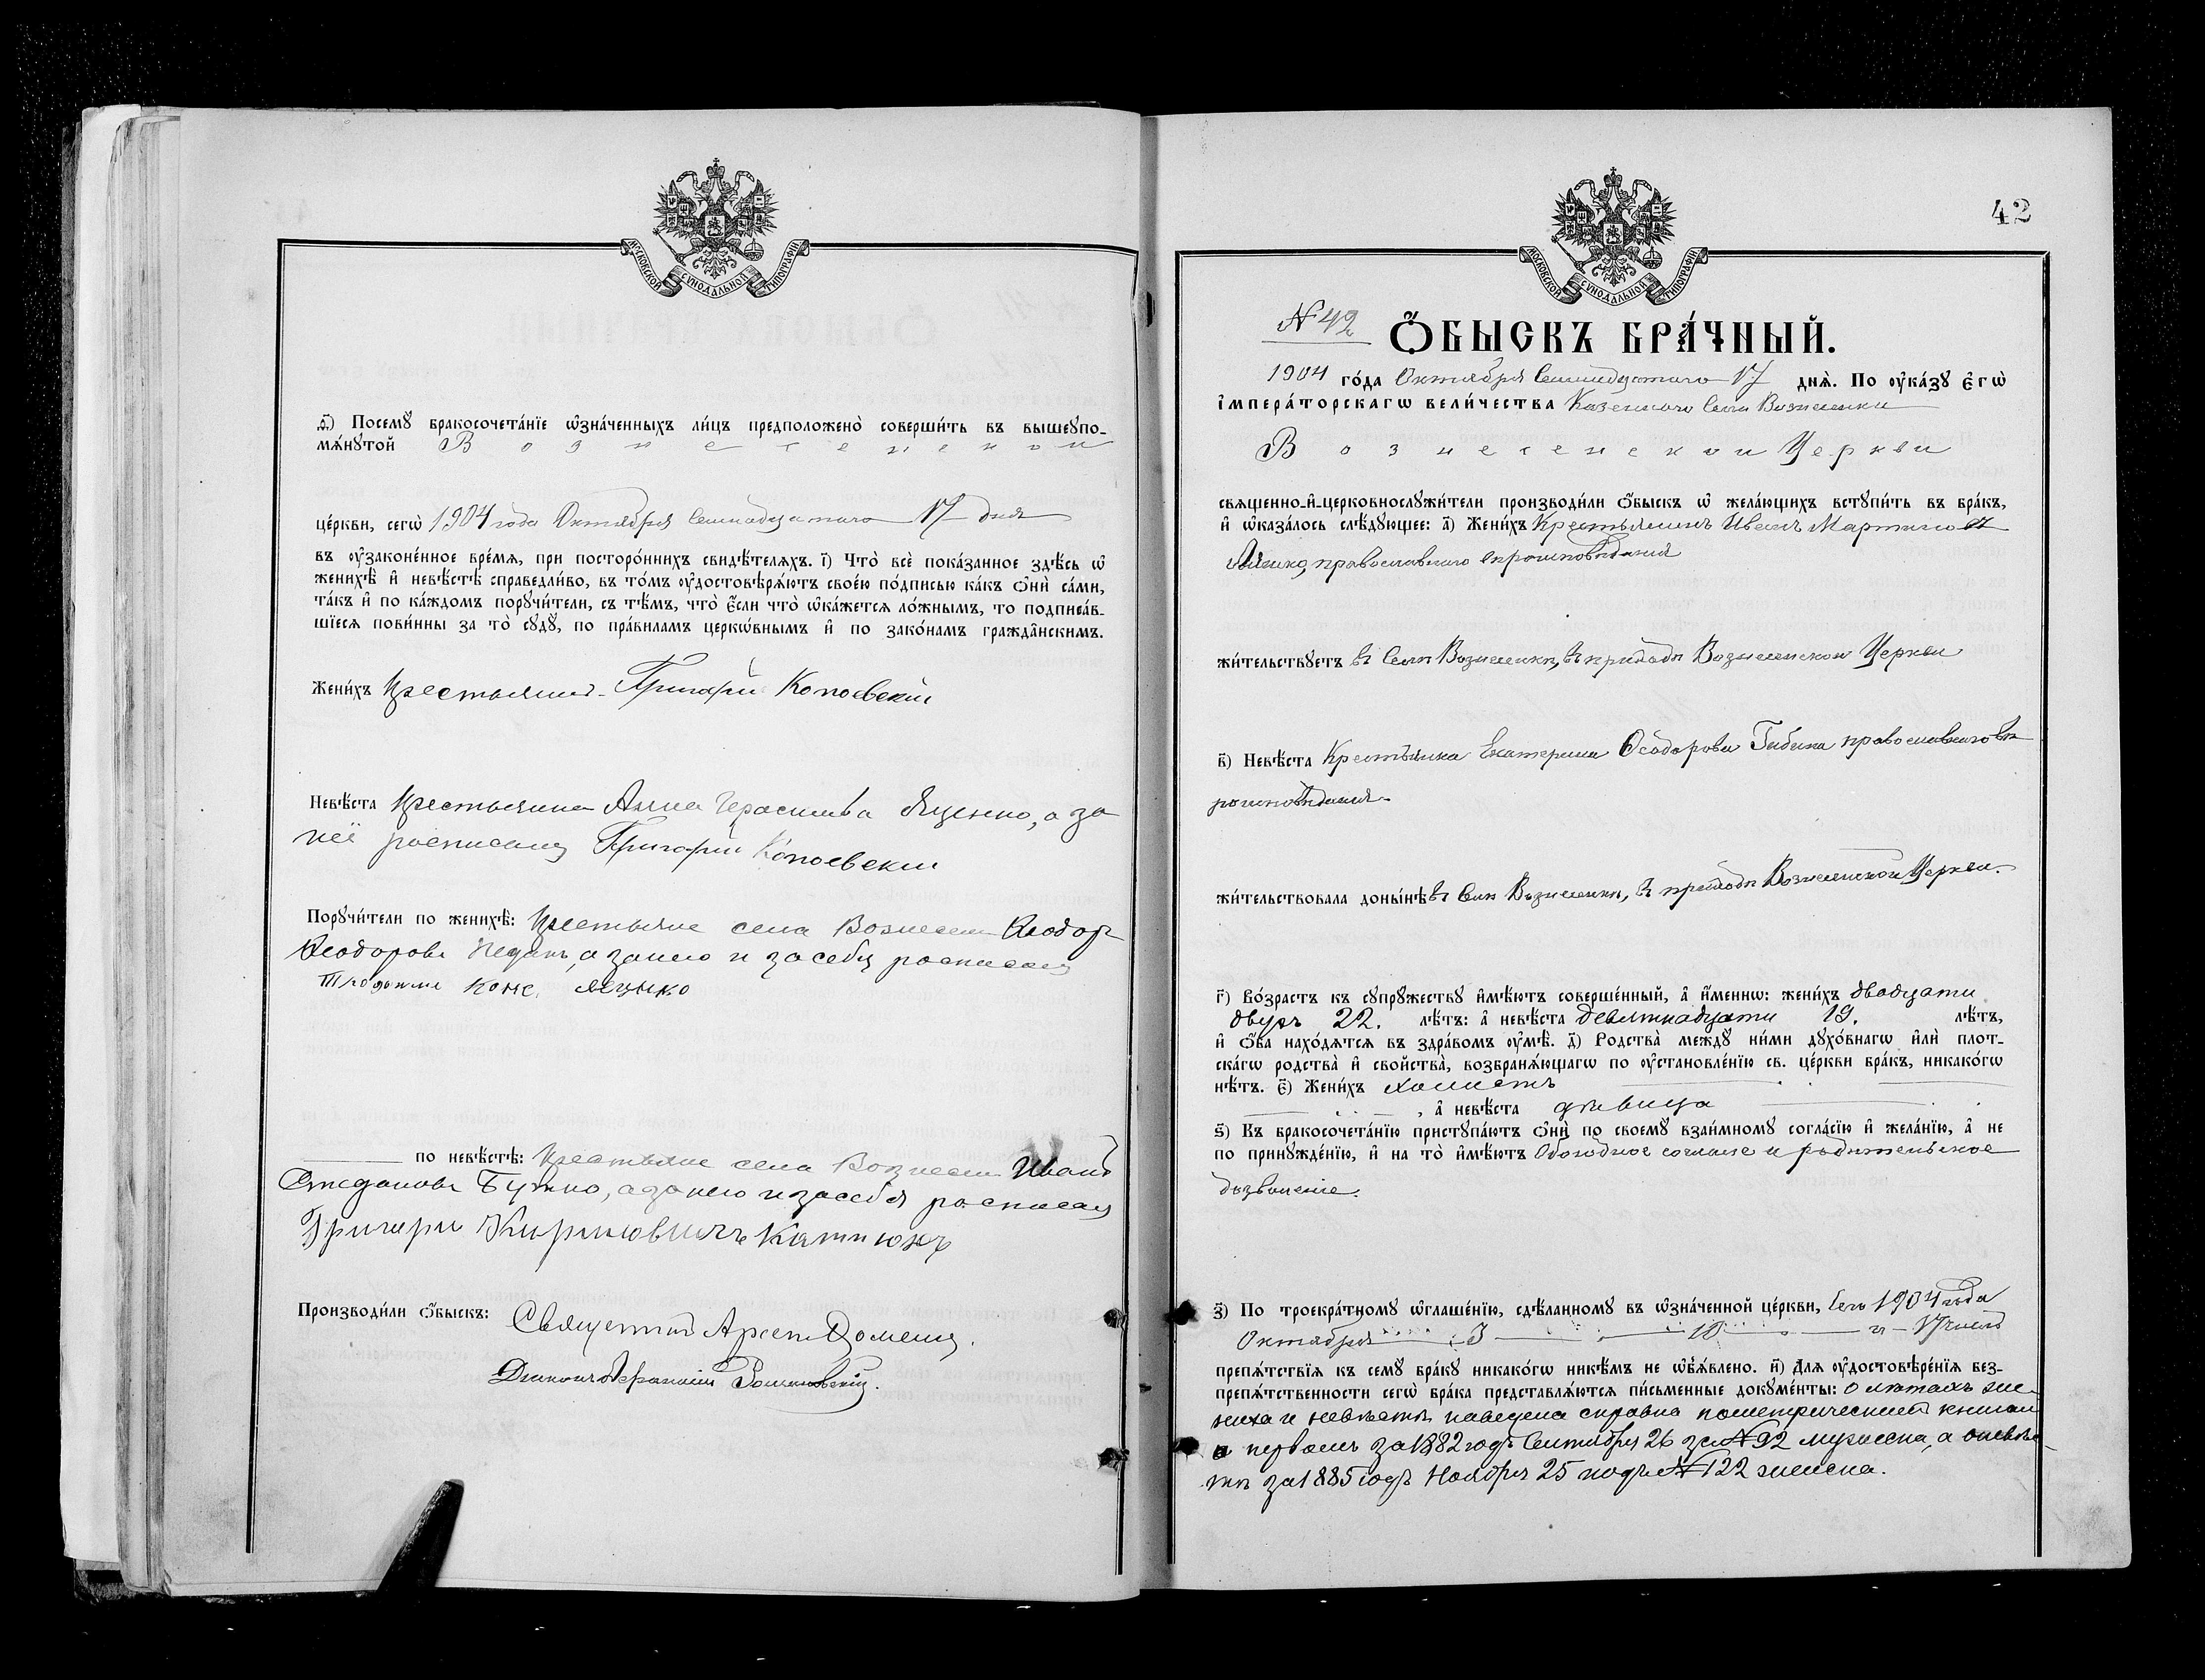 МОСКОВСКОЙ СѴНОДАЛЬНОЙ ТИПОГРАФІИ
ѳ҃) Посемꙋ̀ бракосочета́нїе ѡ҆зна́ченныхъ ли́цъ предположено̀ соверши́ть въ вышеꙋпо-
мѧ́нꙋтой Вознесенской
це́ркви, сегѡ̀ 1904 года Октября Семнадцатаго 17 дня
въ ᲂу҆законе́нное вре́мѧ, при посторо́ннихъ свидѣ́телѧхъ. і҃) Что̀ всѐ пока́занное здѣ́сь ѡ҆
женихѣ̀ и҆ невѣ́стѣ справедли́во, въ то́мъ ᲂу҆достовѣрѧ́ютъ свое́ю по́дписью ка́къ ѻ҆нѝ са́ми,
та́къ и҆ по ка́ждомъ порꙋчи́тели, съ тѣ́мъ, что̀ є҆́сли что̀ ѡ҆ка́жетсѧ ло́жнымъ, то подписа́в-
шїесѧ пови́нны за то̀ сꙋдꙋ̀, по пра́виламъ церко́внымъ и҆ по зако́намъ гражда́нскимъ.
Жени́хъ Крестьянин Григорій Копоевскій
Невѣ́ста Крестьянка Анна Герасимова Яценко, а за
неё росписался Григорій Копоевский
Порꙋчи́тели по женихѣ̀: Крестьяне села Вознесен Ѳеодор
Ѳеодоровъ а занего и засебя росписался
по невѣ́стѣ: Крестьяне села Вознесен Иванъ
Бутко, а занего и засебя росписался
Григори Кириловичъ
Производи́ли ѻ҆́быскъ: Священникъ Арсен
Диаконъ
42
МОСКОВСКОЙ СѴНОДАЛЬНОЙ ТИПОГРАФІИ
№ 42 Ѻ҆́БЫСКЪ БРА́ЧНЫЙ.
1904 го́да Октября Семнадцатаго 17 днѧ̀. По ᲂу҆ка́зꙋ є҆гѡ̀
і҆мпера́торскагѡ вели́чества Казеннаго Села Вознесенки
Вознесенской Церкви
свѧщенно-и҆-церковнослꙋжи́тели производи́ли ѻ҆́быскъ ѡ҆ жела́ющихъ встꙋпи́ть въ бра́къ,
и҆ ѡ҆каза́лось слѣ́дꙋющее: а҃) Жени́хъ Крестьянинъ Иванъ Мартиновъ
православнаго вероисповѣданія
жи́тельствꙋетъ въ Селѣ Вознесенкѣ, въ приходѣ Вознесенской Церкви
в҃) Невѣ́ста Крестьянка Екатерина Ѳеодорова православнаго вѣ-
роисповѣданія.
жи́тельствовала доны́нѣ въ Селѣ Вознесенкѣ, въ приходѣ Вознесенской Церкви.
г҃) Во́зрастъ къ сꙋпрꙋ́жествꙋ и҆мѣ́ютъ соверше́нный, а҆ и҆́меннѡ: жени́хъ двадцати
двухъ 22. лѣ́тъ: а҆ невѣ́ста девятнадцати 19. лѣ́тъ,
и҆ ѻ҆́ба нахо́дѧтсѧ въ здра́вомъ ᲂу҆мѣ̀. д҃) Родства̀ междꙋ̀ ни́ми дꙋхо́внагѡ и҆лѝ плот-
ска́гѡ родства̀ и҆ сво́йства̀, возбранѧ́ющагѡ по ᲂу҆становле́нїю св. це́ркви бра́къ, никако́гѡ
нѣ́тъ. є҃) Жени́хъ холостъ
, а҆ невѣ́ста дѣвица
ѕ҃) Къ бракосочета́нїю пристꙋпа́ютъ ѻ҆нѝ по своемꙋ̀ взаи́мномꙋ согла́сїю и҆ жела́нїю, а҆ не
по принꙋжде́нїю, и҆ на то̀ и҆мѣ́ютъ Обоюдное согласіе и родительское
дозволеніе.
з҃) По троекра́тномꙋ ѡ҆глаше́нїю, сдѣ́ланномꙋ въ ѡ҆зна́ченной це́ркви, Сего 1904 года
Октября 3 10 и 17 чиселъ
препѧ́тствїѧ къ семꙋ̀ бра́кꙋ никако́гѡ никѣ́мъ не ѡ҆б̾ѧ́влено. и҃) Длѧ ᲂу҆достовѣре́нїѧ без-
препѧ́тственности сегѡ̀ бра́ка представлѧ́ютсѧ пи́сьменные докꙋме́нты: о лѣтахъ же-
ниха и невѣсты наведена справка пометрическимъ книгам
о первомъ за 1882 годъ Сентября 26 за № 92 мужеска, а оневѣс-
тѣ за 1885 годъ Ноября 25 подъ № 122 женска.